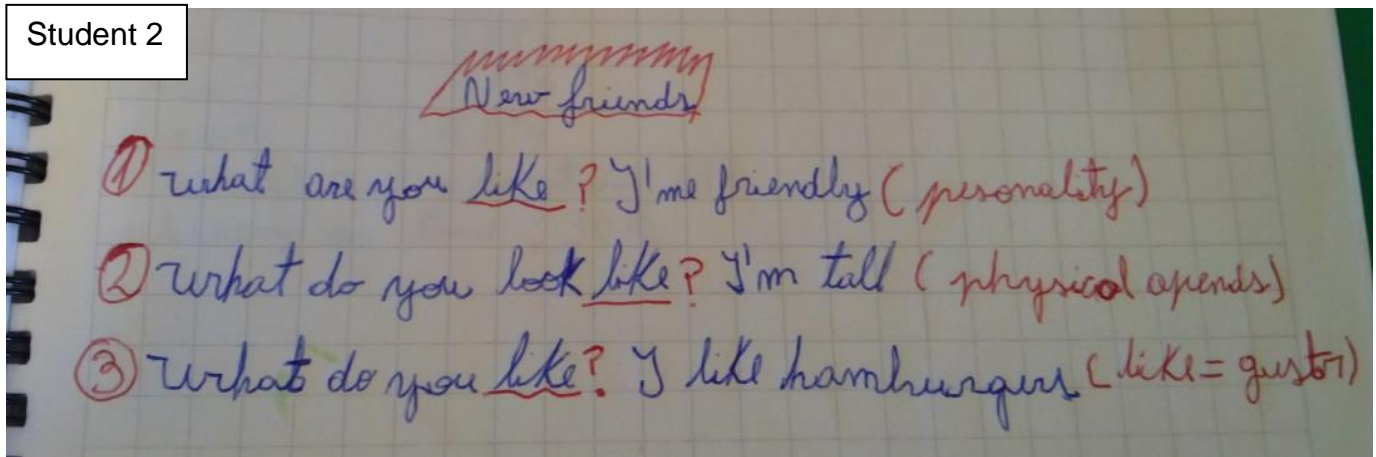 Student 2
New friends
1 what are you like? I'me friendly (pesonality)
2 What do you look like? I'm tall (physical apends)
3 What do you like? I like hamburgers (like = gustor)